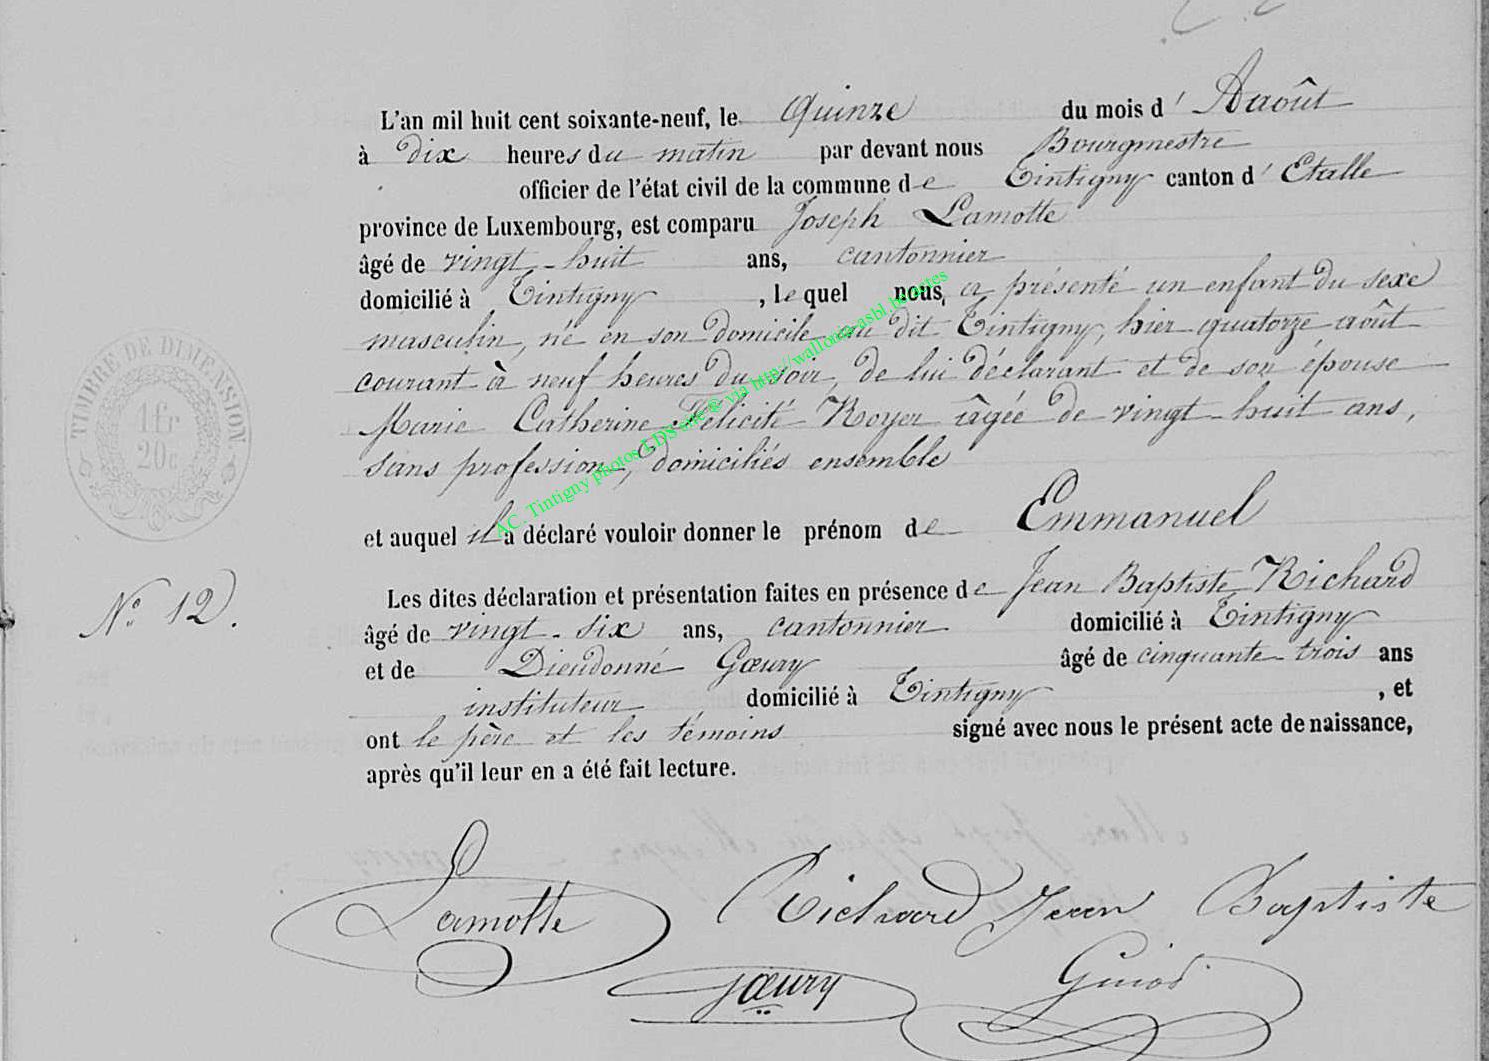 L'an mil huit cent soixante-neuf, le Quinze du mois d' Aaoût
à dix heures du matin par devant nous Bourgmestre
officier de l'état civil de la commune de Tintigny canton d' Etalle
province de Luxembourg, est comparu Joseph Lamotte
âgé de vingt-huit ans, cantonnier
domicilié à Tintigny, lequel nous, a présenté un enfant du sexe
masculin, né en son domicile au dit Tintigny, hier quatorze août
courant à neuf heures du soir, de lui déclarant et de son épouse
Marie Catherine Félicité Royer âgée de vingt-huit ans,
sans profession, domiciliés ensemble
et auquel il a déclaré vouloir donner le prénom de Emmanuel
Les dites déclaration et présentation faites en présence de Jean Baptiste Richard
âgé de vingt-six ans, cantonnier domicilié à Tintigny
et de Dieudonné Gœury âgé de cinquante-trois ans
instituteur domicilié à Tintigny, et
ont le père et les témoins signé avec nous le présent acte de naissance,
après qu'il leur en a été fait lecture.
N° 12.
TIMBRE DE DIMENSION
1 fr
20 c
AC. Tintigny photos LDS site @ via http://wallonia-asbl.be/actes
Lamotte Richard Jean Baptiste
Gœury